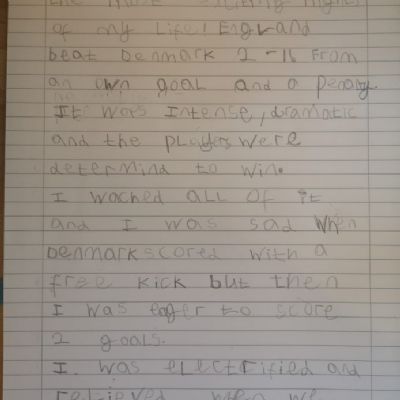 the most exciting night
of my Life! England
beat Denmark 2-1 From
an own goal and a Penalty.
It was Intense, dramatic
and the players were
determind to win.
I wached ALL OF it
and I was sad When
Denmark scored with a
free kick but then
I was eager to score
2 goals.
I was eLectrified and
relieved when we